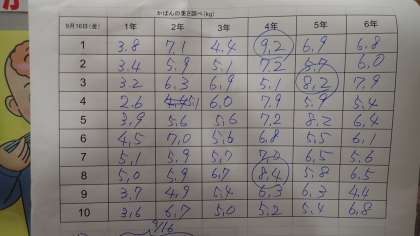 かばんの重さ調べ(kg)
9月16日(金) 1年 2年 3年 4年 5年 6年
1 3.8 7.1 4.4 9.2 6.9 6.8
2 3.4 5.9 5.1 7.2 6.0
3 3.2 6.3 6.9 5.1 8.2 7.9
4 2.6 5.1 6.0 7.9 5.9 5.4
5 3.9 5.6 5.6 7.2 8.2 6.4
6 4.5 7.0 5.6 6.8 5.5 6.1
7 5.1 5.9 5.7 7.0 6.5 5.6
8 5.0 5.9 6.7 8.4 5.8 6.5
9 3.7 4.9 5.4 6.3 6.3 4.4
10 3.6 6.7 5.0 5.2 5.4 6.8
9/16